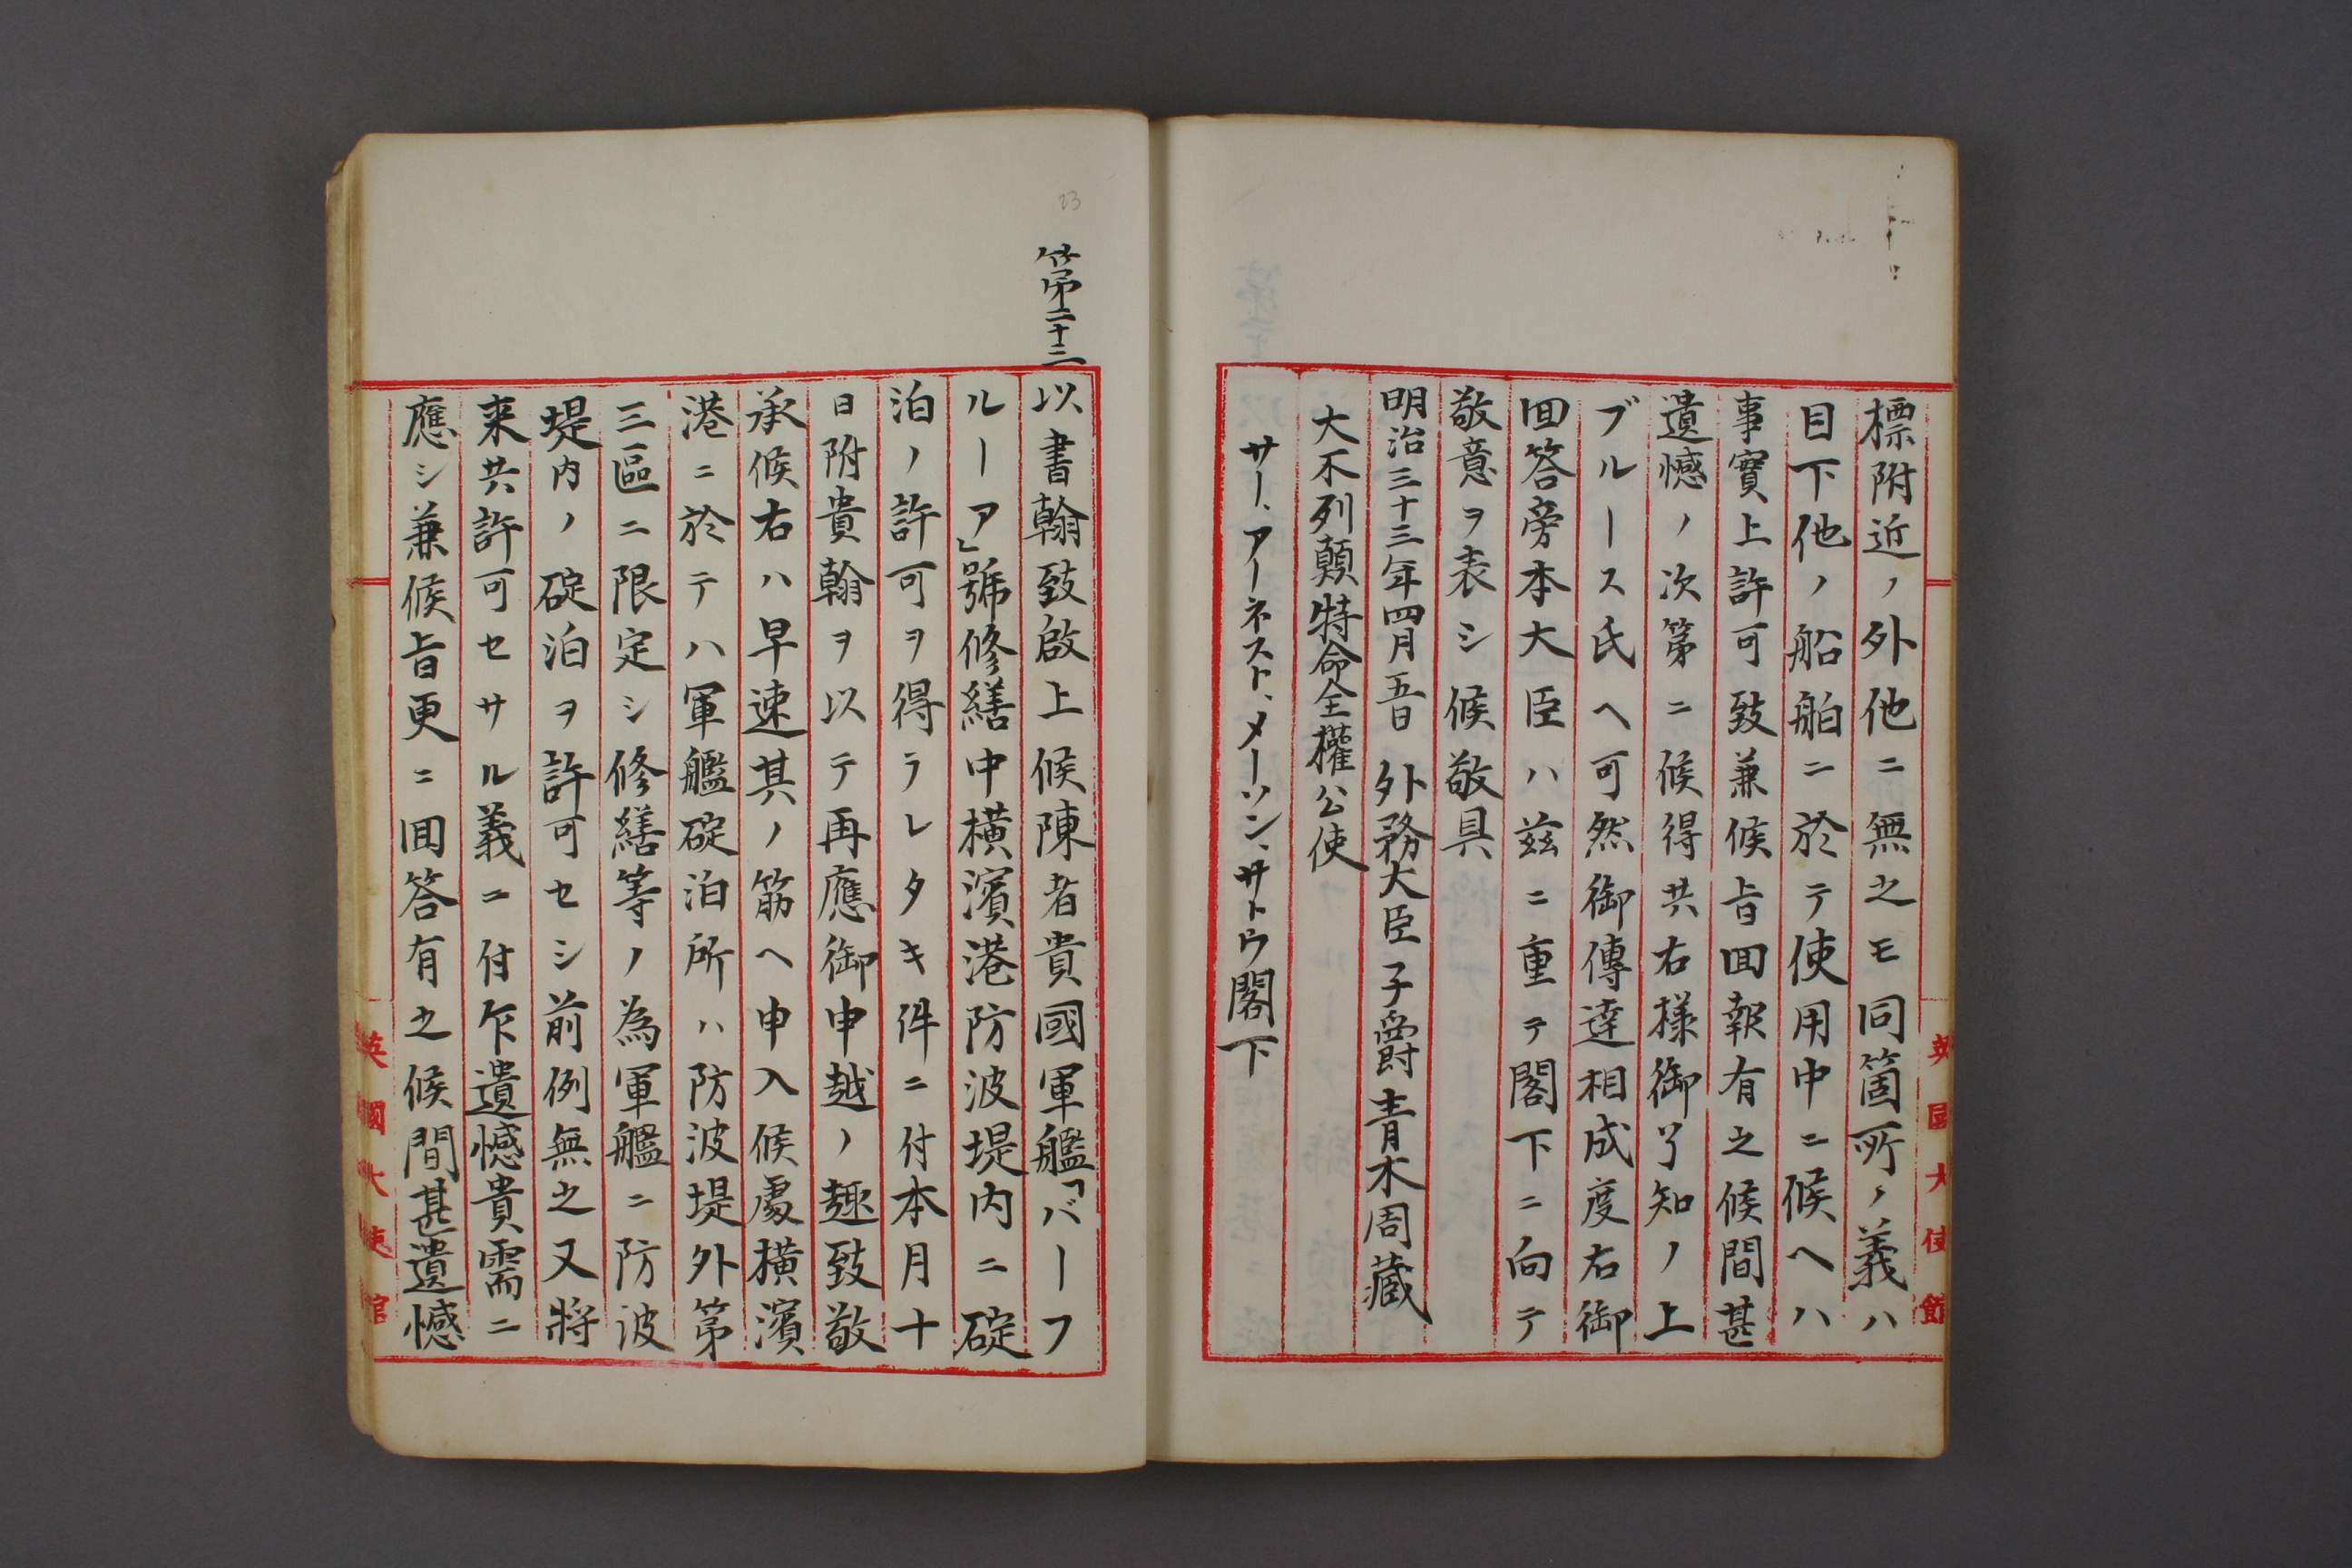 標附近ノ外他ニ無之モ同箇所ノ義ハ
目下他ノ船舶ニ於テ使用中ニ候ヘハ
事實上許可致兼候旨回報有之候間甚
遺憾ノ次第ニ候得共右様御了知ノ上
ブルース氏ヘ可然御傳達相成度右御
回答旁本大臣ハ玆ニ重テ閣下ニ向テ
敬意ヲ表シ候敬具
明治三十三年四月五日 外務大臣子爵青木周藏
大不列顛特命全權公使
サー、アーネスト、メーソン、サトウ閣下
英國大使館
23
第二十三
以書翰致啟上候陳者貴國軍艦「バーフ
ルーア」號修繕中横濱港防波堤内ニ碇
泊ノ許可ヲ得ラレタキ件ニ付本月十
日附貴翰ヲ以テ再應御申越ノ趣致敬
承候右ハ早速其ノ筋ヘ申入候處横濱
港ニ於テハ軍艦碇泊所ハ防波堤外第
三區ニ限定シ修繕等ノ為軍艦ニ防波
堤内ノ碇泊ヲ許可セシ前例無之又將
来共許可セサル義ニ付乍遺憾貴需ニ
應シ兼候旨更ニ回答有之候間甚遺憾
英國大使館